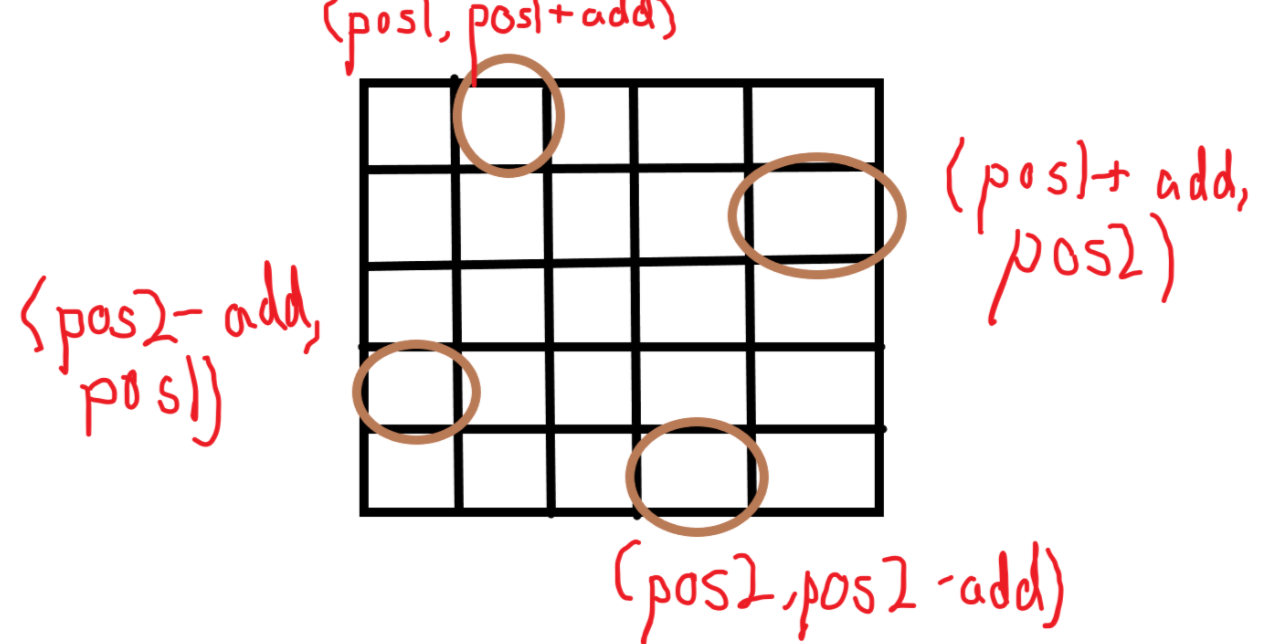 (pos1, pos1+add)
(pos1+ add,
pos2)
(pos2- add,
pos1)
(pos2,pos2-add)